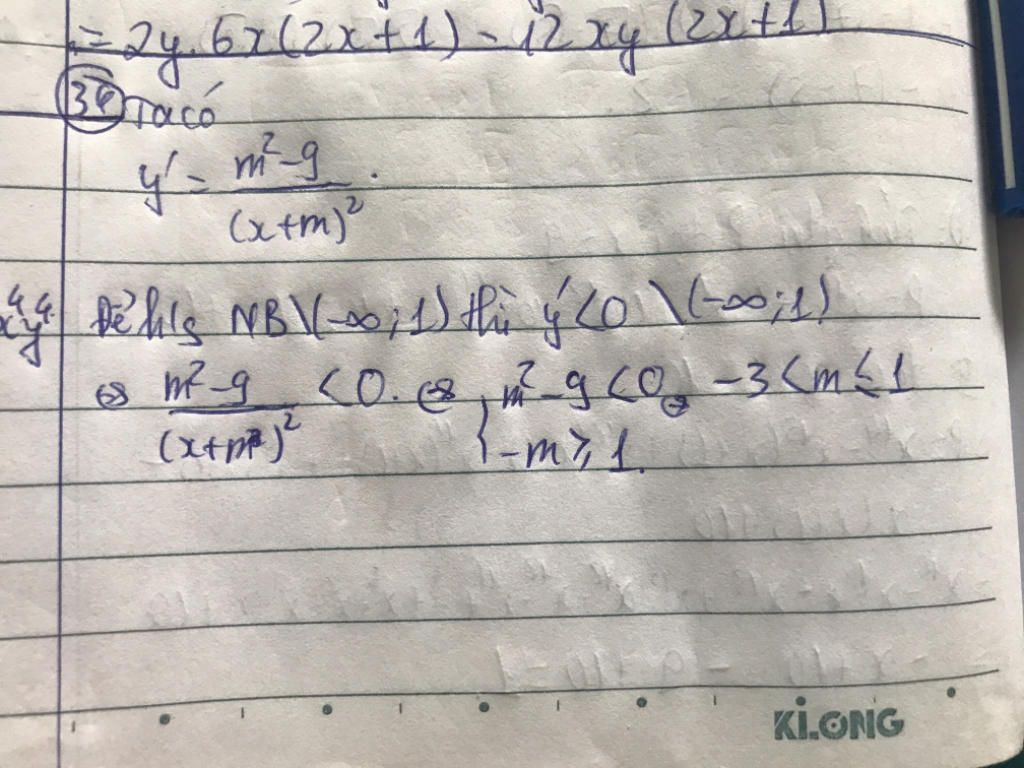 = 2y.6x(2x+1) - 12xy(2x+1)
34 Ta có
y' = m² - 9 / (x+m)².
x⁴y⁴ Để h/s NB \ (-∞; 1) thì y' < 0 \ (-∞; 1)
⇔ m² - 9 / (x+m)² < 0. ⇔ { m² - 9 < 0 ⇔ -3 < m ≤ 1
-m ≥ 1.
KiLONG